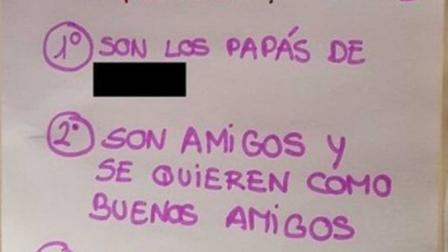 1º SON LOS PAPÁS DE
2º SON AMiGOS Y
SE QUIEREN COMO
BUENOS AMiGOS